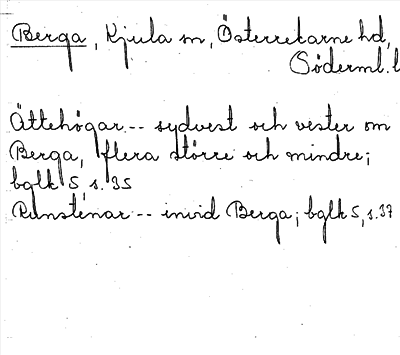 Berga, Kjula sn, Österrekarne hd,
Söderml. l
Ättehögar -- sydvest och vester om
Berga, flera större och mindre;
bglk 5, s. 35
Runstenar -- invid Berga; bglk 5, s. 37